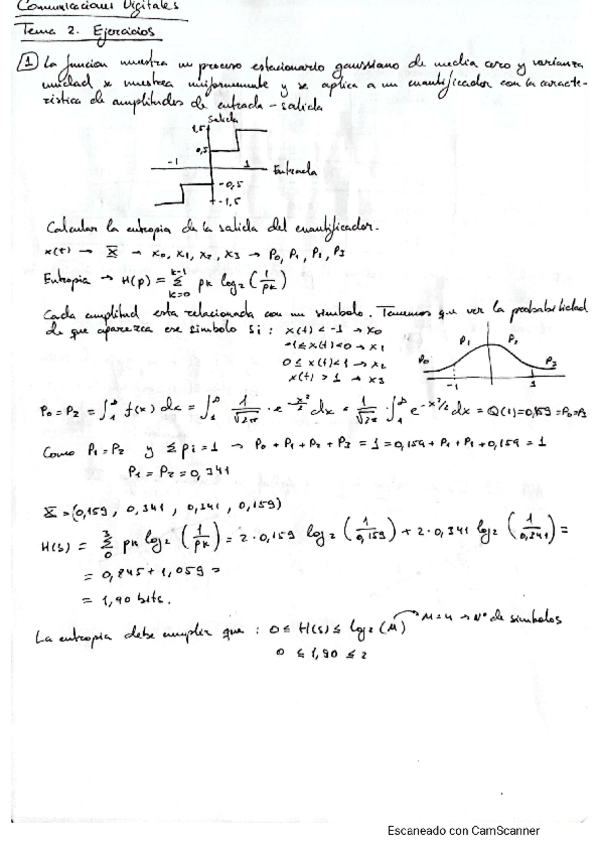 Comunicaciones Digitales
Tema 2. Ejercicios
1 La función muestra un proceso estacionario gaussiano de media cero y varianza
unidad se muestrea uniformemente y se aplica a un cuantificador con la caracte-
rística de amplitudes de entrada - salida
Salida
1,5
0,5
-1
1
Entrada
-0,5
-1,5
Calcular la entropia de la salida del cuantificador.
x(t) → X → x0, x1, x2, x3 → P0, P1, P2, P3
Entropia → H(p) = Σ k=0 k-1 pk log2 (1/pk)
Cada amplitud esta relacionada con un simbolo. Tenemos que ver la probabilidad
de que aparezca ese simbolo si: x(t) < -1 → x0
-1 ≤ x(t) < 0 → x1
0 ≤ x(t) < 1 → x2
x(t) > 1 → x3
P0 P1 P2 P3
-1 1
P0 = P2 = ∫ f(x) dx = ∫ 1/√2π · e^-x²/2 dx = 1/√2π · ∫ e^-x²/2 dx = Q(1) = 0,159 = P0 = P3
Como P1 = P2 y Σpi = 1 → P0 + P1 + P2 + P3 = 1 = 0,159 + P1 + P1 + 0,159 = 1
P1 = P2 = 0,341
X = (0,159, 0,341, 0,341, 0,159)
H(s) = Σ 0 3 pk log2 (1/pk) = 2·0,159 log2 (1/0,159) + 2·0,341 log2 (1/0,341) =
= 0,845 + 1,059 =
= 1,90 bits.
La entropia debe cumplir que : 0 ≤ H(s) ≤ log2 (M) → M=4 → Nº de simbolos
0 ≤ 1,90 ≤ 2
Escaneado con CamScanner